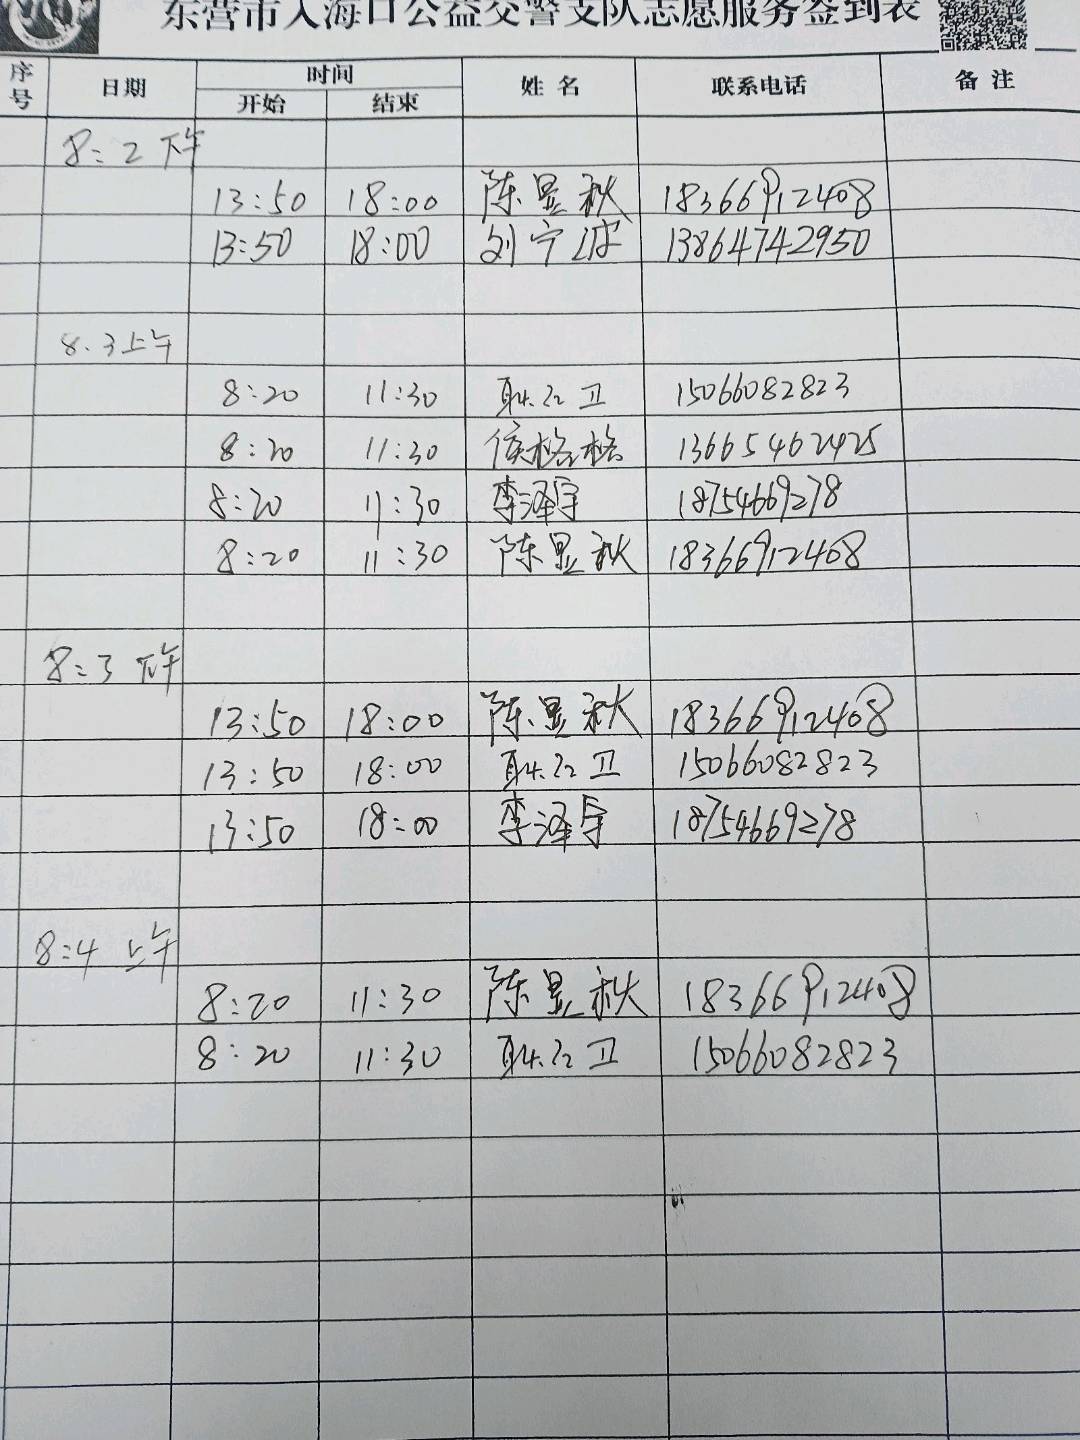 东营市入海口公益交警支队志愿服务签到表
序号 日期 时间 姓名 联系电话 备注
开始 结束
8:2 下午
13:50 18:00 陈昱秋 18366912408
13:50 18:00 刘宁波 13864742950
8.3上午
8:20 11:30 耿红卫 15066082823
8:20 11:30 侯格格 13665462425
8:20 11:30 李泽宇 18754669278
8:20 11:30 陈昱秋 18366912408
8:3 下午
13:50 18:00 陈昱秋 18366912408
13:50 18:00 耿红卫 15066082823
13:50 18:00 李泽宇 18754669278
8:4 上午
8:20 11:30 陈昱秋 18366912408
8:20 11:30 耿红卫 15066082823